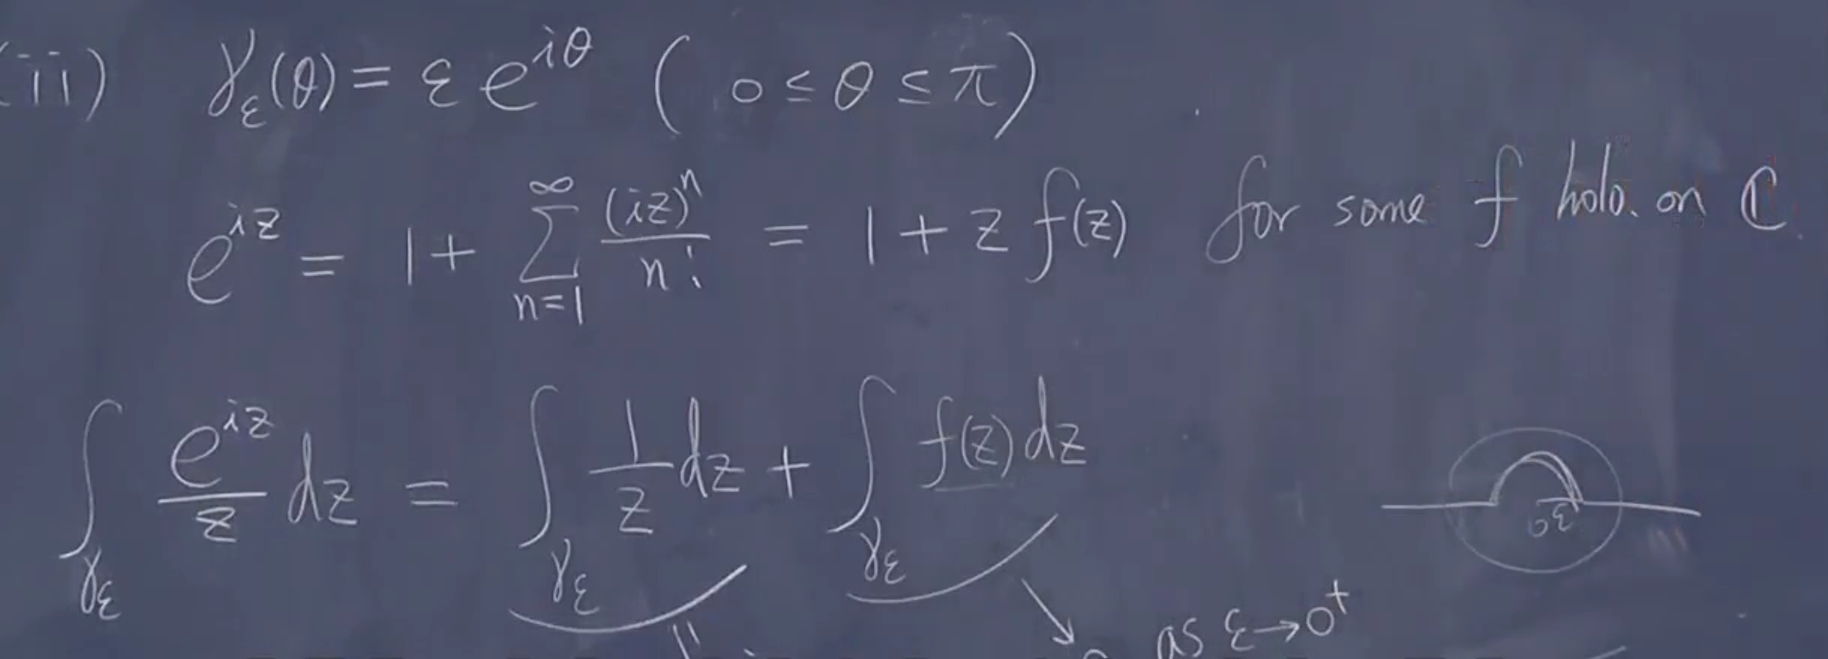 (ii) γ_ε(θ) = ε e^{iθ} ( 0 ≤ θ ≤ π )
e^{iz} = 1 + ∑_{n=1}^{∞} (iz)^n / n! = 1 + z f(z) for some f holo. on ℂ.
∫_{γ_ε} e^{iz}/z dz = ∫_{γ_ε} 1/z dz + ∫_{γ_ε} f(z) dz
0 ε
as ε → 0⁺